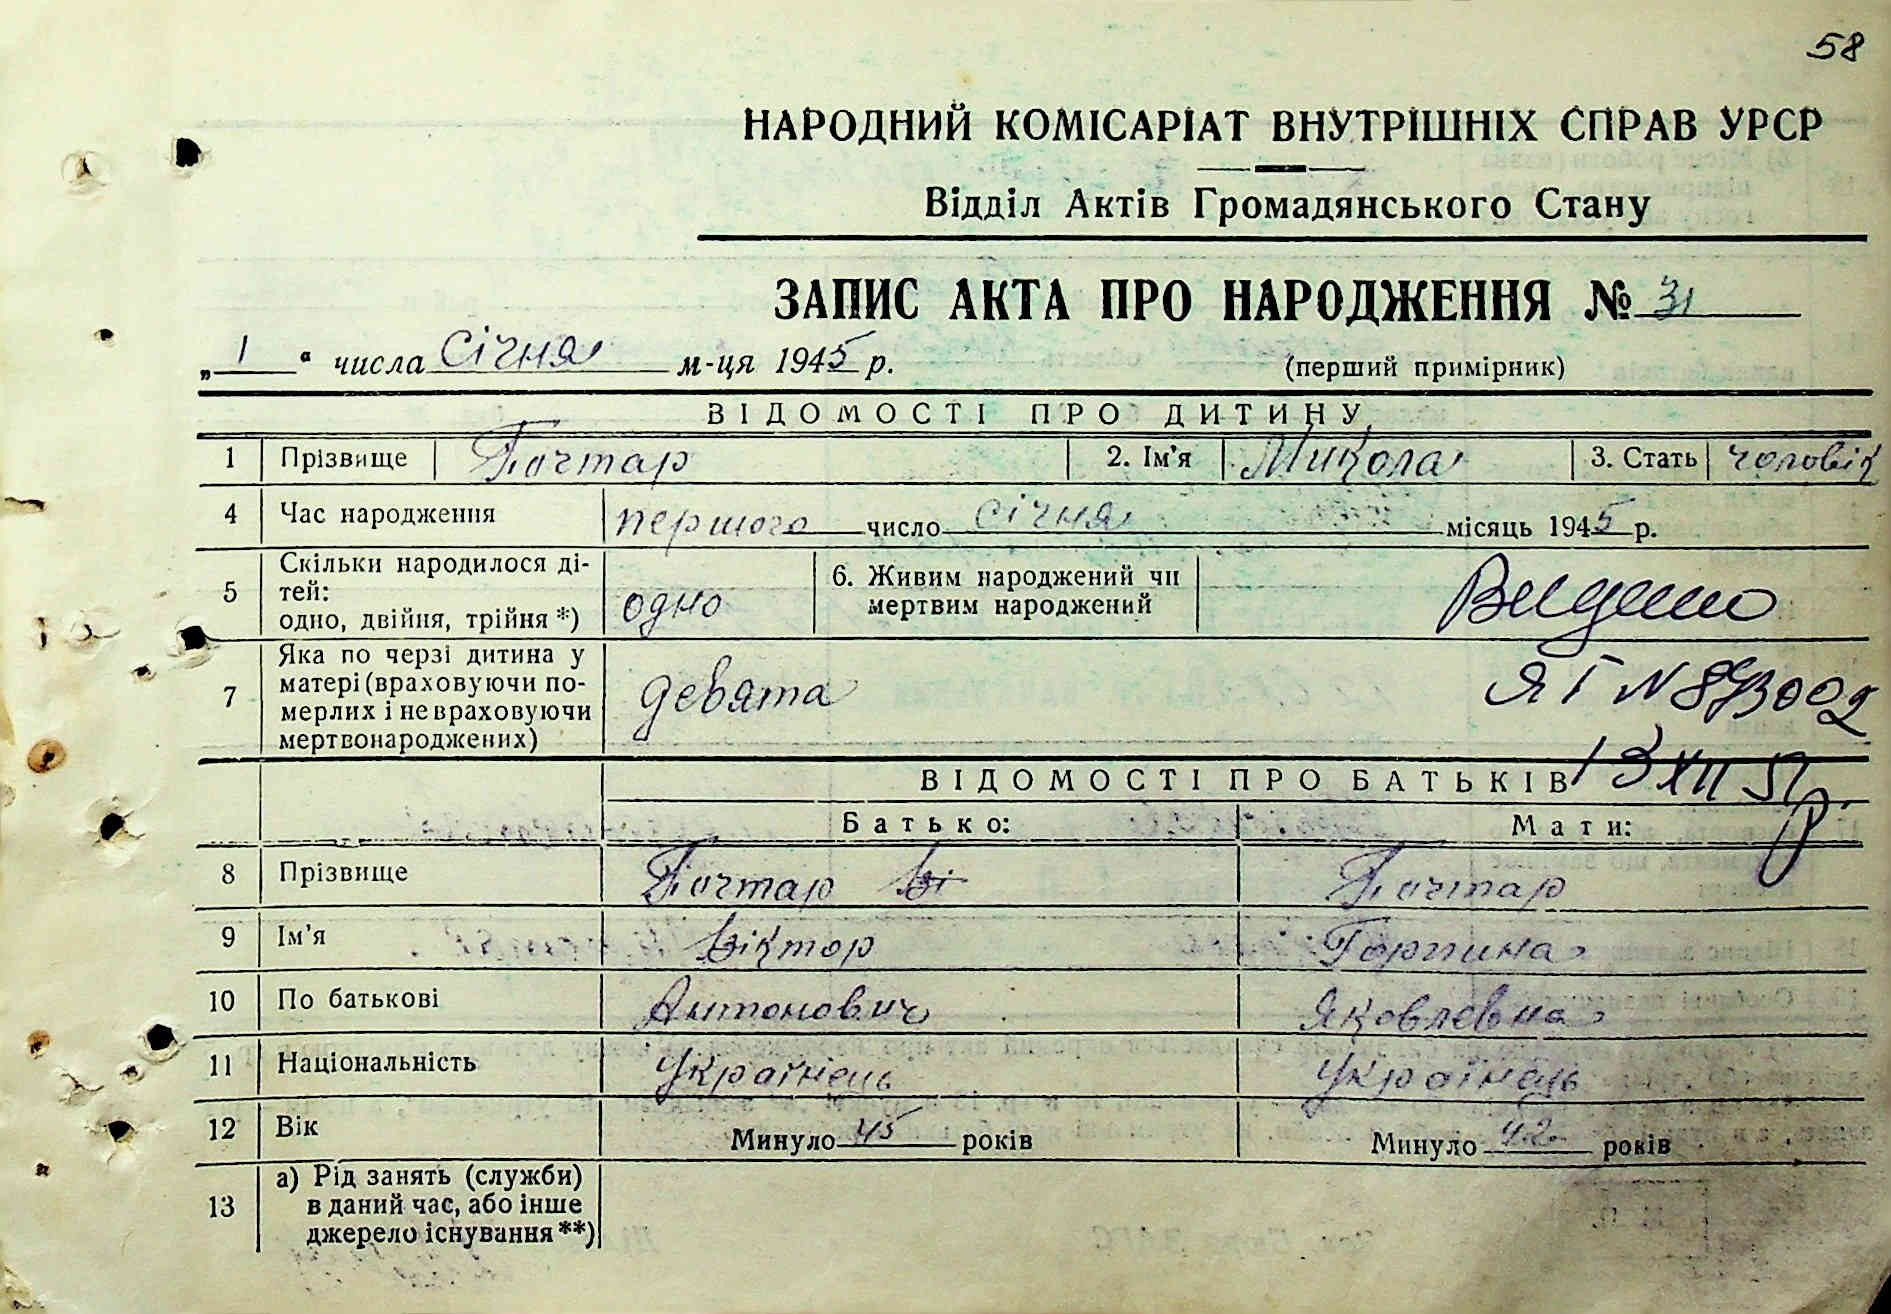 58
НАРОДНИЙ КОМІСАРІАТ ВНУТРІШНІХ СПРАВ УРСР
Відділ Актів Громадянського Стану
ЗАПИС АКТА ПРО НАРОДЖЕННЯ № 31
„ 1 “ числа січня м-ця 1945 р. (перший примірник)
ВІДОМОСТІ ПРО ДИТИНУ
1 Прізвище Почтар 2. Ім'я Микола 3. Стать чоловік
4 Час народження першого число січня місяць 1945 р.
5 Скільки народилося ді-
тей:
одно, двійня, трійня *) одно
6. Живим народжений чи
мертвим народжений
Видано
7 Яка по черзі дитина у
матері (враховуючи по-
мерлих і не враховуючи
мертвонароджених) девята
ЯГ N
13 XII
ВІДОМОСТІ ПРО БАТЬКІВ
Батько: Мати:
8 Прізвище Почтар Ві Почтар
9 Ім'я Віктор Горпина
10 По батькові Антонович Яковлевна
11 Національність Українець Українець
12 Вік Минуло 45 років Минуло 42 років
13 а) Рід занять (служби)
в даний час, або інше
джерело існування **)